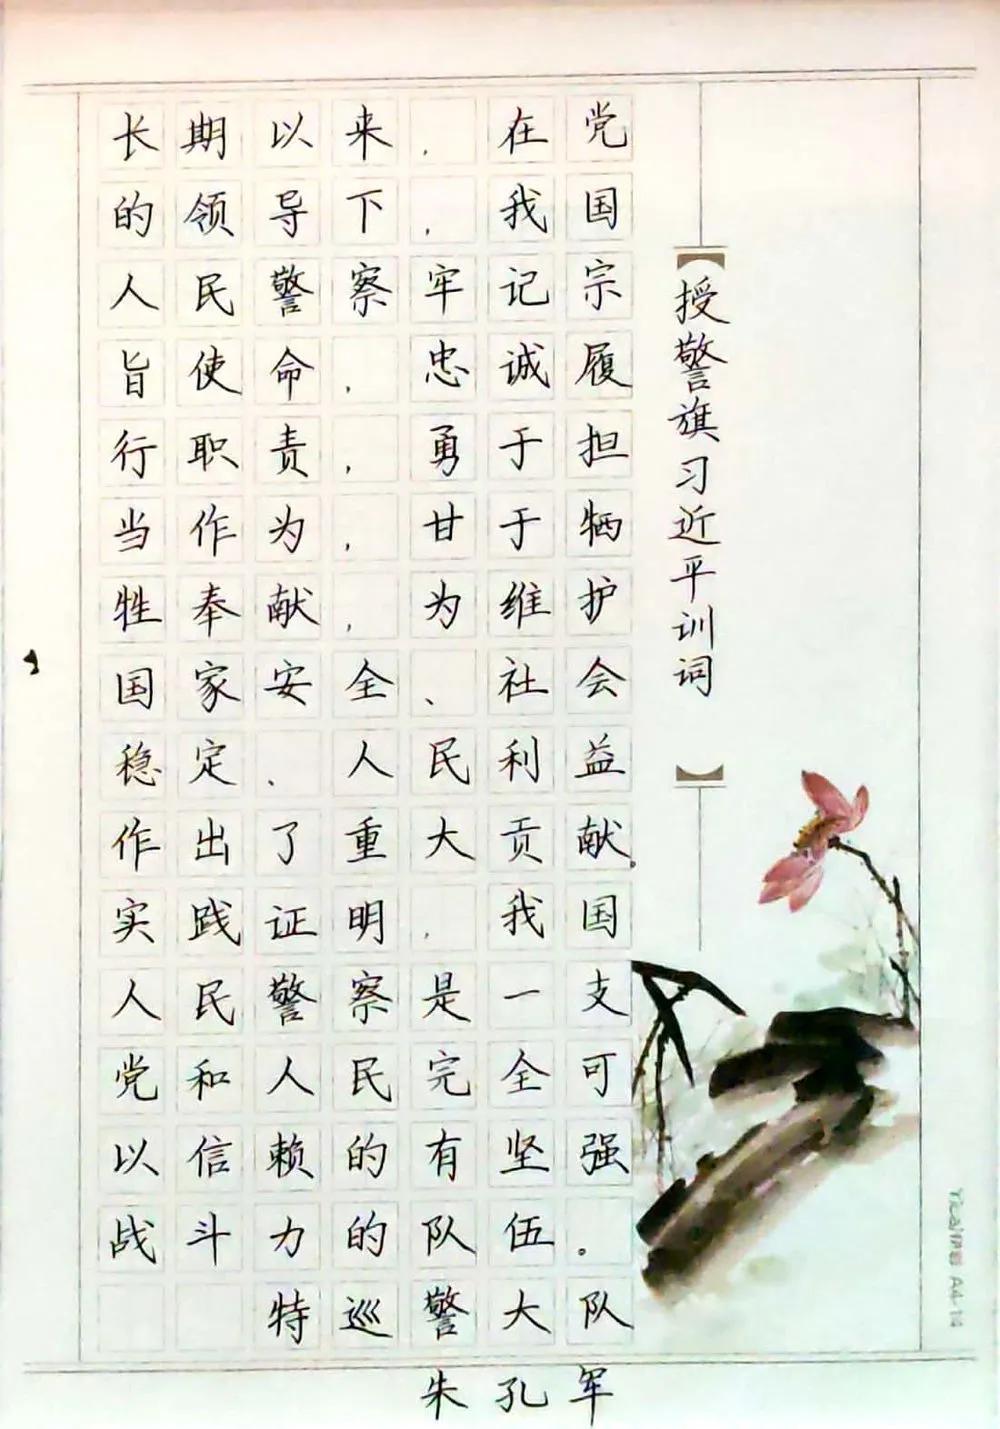 授警旗习近平训词
长期以来，在党
的领导下，我国
人民警察牢记宗
旨使命，忠诚履
行职责，勇于担
当作为，甘于牺
牲奉献，为维护
国家安全、社会
稳定、人民利益
作出了重大贡献。
实践证明，我国
人民警察是一支
党和人民完全可
以信赖的有坚强
战斗力的队伍。
特巡警大队
朱孔军
A4-14